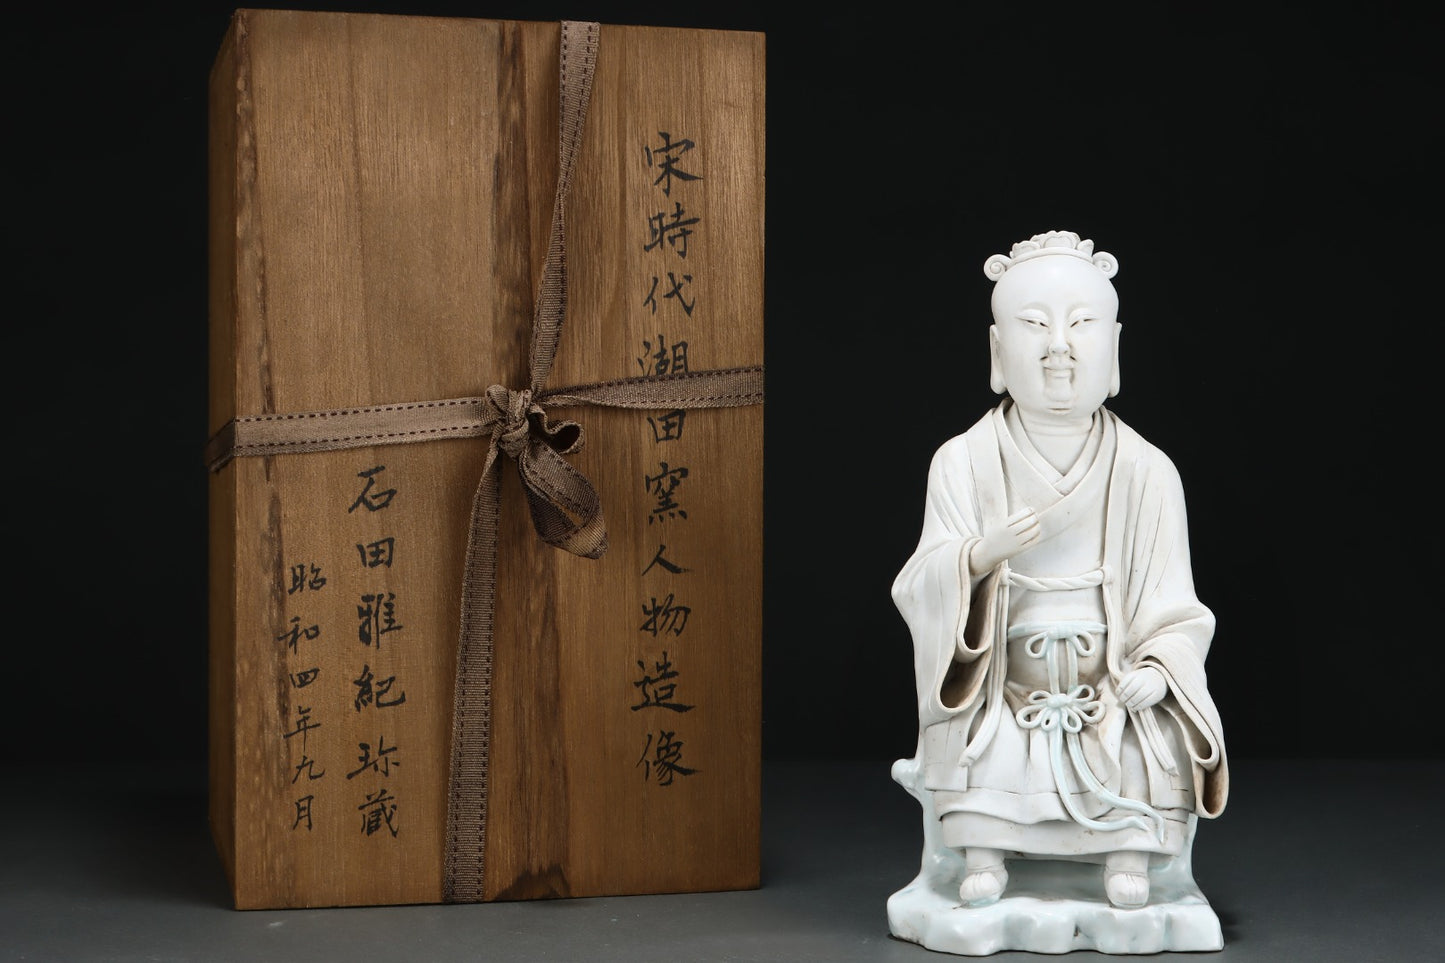 宋時代湖田窯人物造像
石田雅紀珎蔵
昭和四年九月